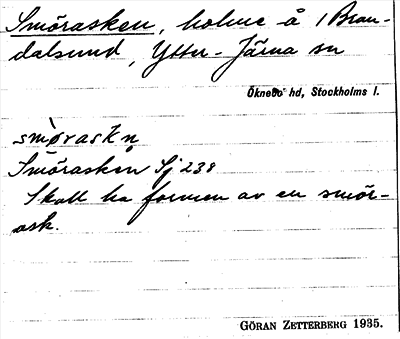 Smörasken, holme å 1 Bran-
dalsund, Ytter-Järna sn
Öknebo hd, Stockholms l.
smö̀raskn̥
Smörasken Sj 238
Skall ha formen av en smör-
ask.
GÖRAN ZETTERBERG 1935.